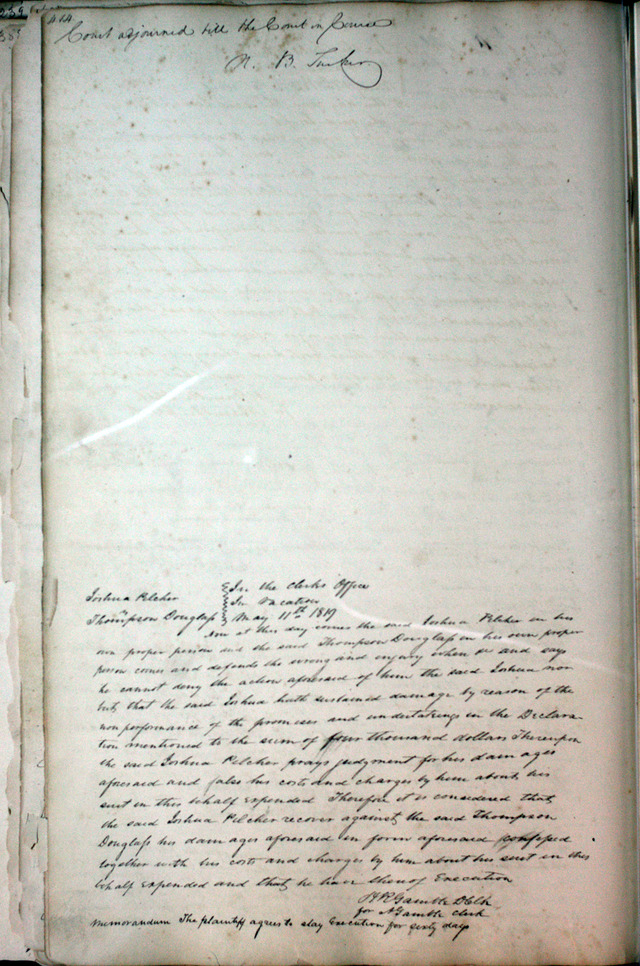 404
Court adjourned till the Court in Course
N. B. Tucker
Joshua Pilcher
In the Clerks Office
In Vacation
Thompson Douglass
May 11th 1819
Now at this day comes the said Joshua Pilcher in his
own proper person and the said Thompson Douglass in his own proper
person comes and defends the wrong and injury when &c and says
he cannot deny the action aforesaid of him the said Joshua nor
but that the said Joshua hath sustained damage by reason of the
non performance of the promises and undertakings in the Declara
tion mentioned to the sum of four thousand dollars Thereupon
the said Joshua Pilcher prays judgment for his damages
aforesaid and also his costs and charges by him about his
suit in this behalf expended Therefore it is considered that
the said Joshua Pilcher recover against the said Thompson
Douglass his damages aforesaid in form aforesaid confessed
together with his costs and charges by him about his suit in this
behalf expended and that he have thereof Execution
Gamble D Clk
for A Gamble clerk
Memorandum The plaintiff agrees to stay Execution for sixty days